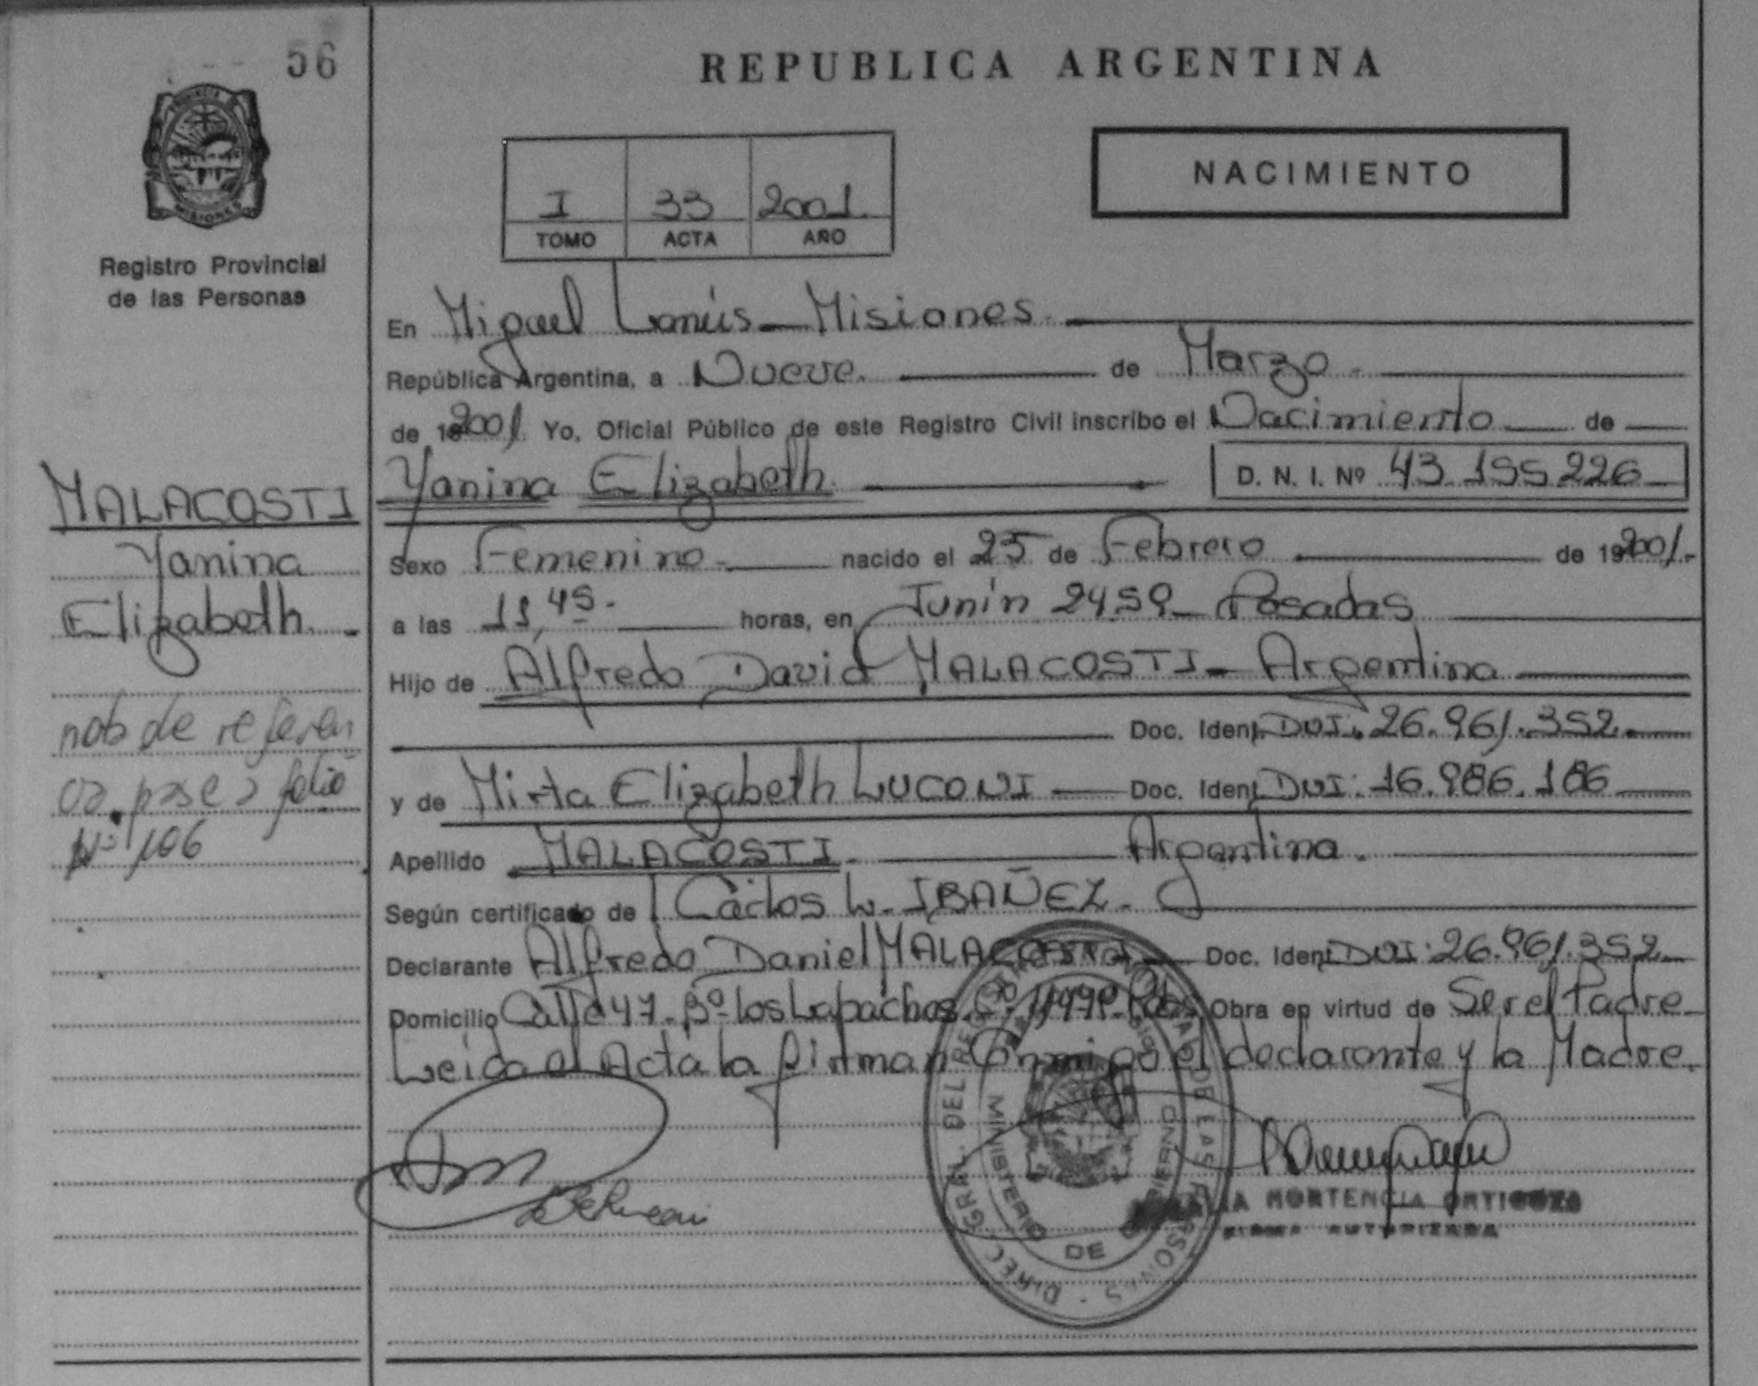 56
REPUBLICA ARGENTINA
NACIMIENTO
I 33 2001
TOMO ACTA AÑO
Registro Provincial
de las Personas
En Miguel Lanús - Misiones
República Argentina, a Nueve de Marzo
de 2001 Yo, Oficial Público de este Registro Civil inscribo el Nacimiento de
Yanina Elizabeth D. N. I. Nº 43.155.226
MALACOSTI
Yanina
Elizabeth.
Sexo Femenino nacido el 25 de Febrero de 2001.-
a las 11,45 horas, en Junín 2459 - Posadas
Hijo de Alfredo David MALACOSTI - Argentina
Doc. Ident. DNI. 26.961.352
y de Mirta Elizabeth LUCONI Doc. Ident. DNI: 16.986.186
Apellido MALACOSTI Argentina.
Según certificado de Carlos L. IBAÑEZ
Declarante Alfredo Daniel MALACOSTI Doc. Ident. DNI: 26.961.352
Domicilio Calle 47 - Bº Los Lapachos Obra en virtud de Ser el Padre
Leida el Acta la firman Conmigo el declarante y la Madre.
nota de referen
cia pase a folio
Nº 106
DIREC. GRAL. DEL REG. DE LAS PERSONAS
MINISTERIO DE GOBIERNO
HORTENCIA ORTIGOZA
FIRMA AUTORIZADA